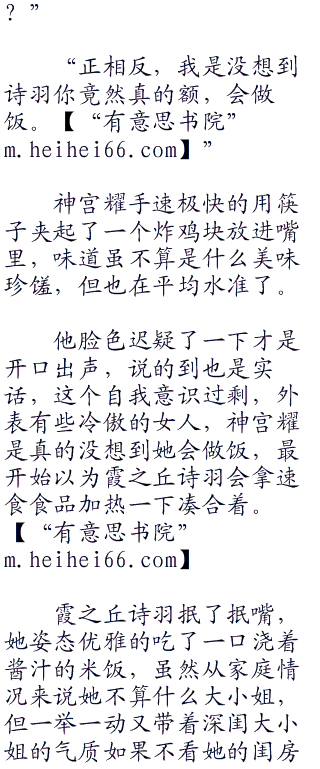 ？”
“正相反，我是没想到
诗羽你竟然真的额，会做
饭。【“有意思书院”
m.heihei66.com】”
神宫耀手速极快的用筷
子夹起了一个炸鸡块放进嘴
里，味道虽不算是什么美味
珍馐，但也在平均水准了。
他脸色迟疑了一下才是
开口出声，说的到也是实
话，这个自我意识过剩，外
表有些冷傲的女人，神宫耀
是真的没想到她会做饭，最
开始以为霞之丘诗羽会拿速
食食品加热一下凑合着。
【“有意思书院”
m.heihei66.com】
霞之丘诗羽抿了抿嘴，
她姿态优雅的吃了一口浇着
酱汁的米饭，虽然从家庭情
况来说她不算什么大小姐，
但一举一动又带着深闺大小
姐的气质如果不看她的闺房